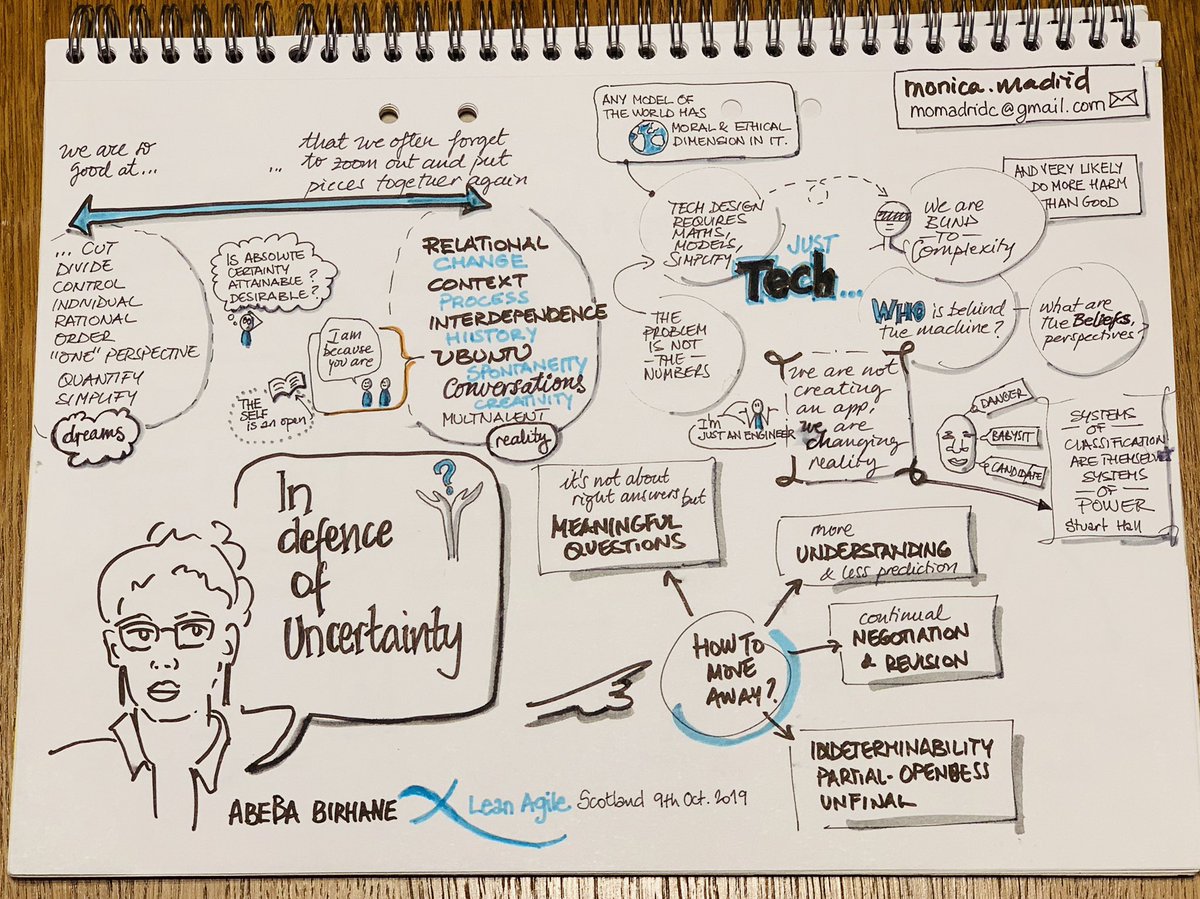 monica.madrid
momadridc@gmail.com
we are so
good at...
... that we often forget
to zoom out and put
pieces together again
... CUT
DIVIDE
CONTROL
INDIVIDUAL
RATIONAL
ORDER
"ONE" PERSPECTIVE
QUANTIFY
SIMPLIFY
dreams
IS ABSOLUTE
CERTAINTY
ATTAINABLE?
DESIRABLE?
THE
SELF
IS an open
I am
because
you are
RELATIONAL
CHANGE
CONTEXT
PROCESS
INTERDEPENDENCE
HIISTORY
UBUNTU
SPONTANEITY
Conversations
CREATIVITY
MULTIVALENT
reality
ANY MODEL OF
THE WORLD HAS
MORAL & ETHICAL
DIMENSION IN IT.
TECH DESIGN
REQUIRES
MATHS,
MODELS,
SIMPLIFY
THE
PROBLEM
IS NOT
THE
NUMBERS
JUST
Tech...
We are
BLIND
TO
Complexity
AND VERY LIKELY
DO MORE HARM
THAN GOOD
WHO is behind
the machine?
What are
the Beliefs,
perspectives?
I'm
JUST AN ENGINEER
we are not
creating
an app,
we are
changing
reality
DANGER
BABYSIT
CANDIDATE
SYSTEMS
OF
CLASSIFICATION
ARE THEMSELVES
SYSTEMS
OF
POWER
Stuart Hall
In
defence
of
Uncertainty
?
it's not about
right answers but
MEANINGFUL
QUESTIONS
more
UNDERSTANDING
& less prediction
continual
NEGOTIATION
& REVISION
HOW TO
MOVE
AWAY?
INDETERMINABILITY
PARTIAL-OPENNESS
UNFINAL
ABEBA BIRHANE
Lean Agile Scotland 9th Oct. 2019